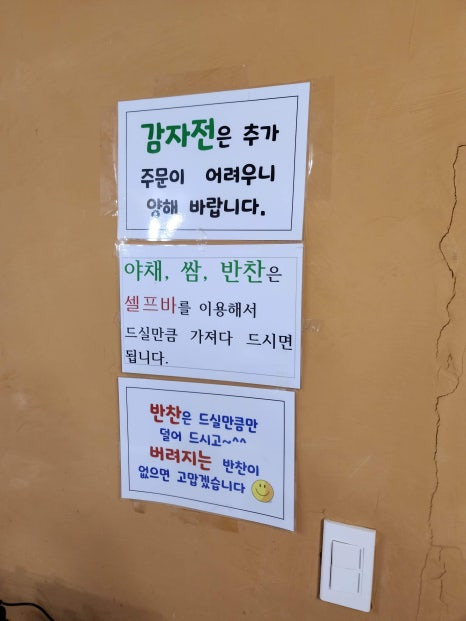 감자전은 추가
주문이 어려우니
양해 바랍니다.
야채, 쌈, 반찬은
셀프바를 이용해서
드실만큼 가져다 드시면
됩니다.
반찬은 드실만큼만
덜어 드시고~^^
버려지는 반찬이
없으면 고맙겠습니다